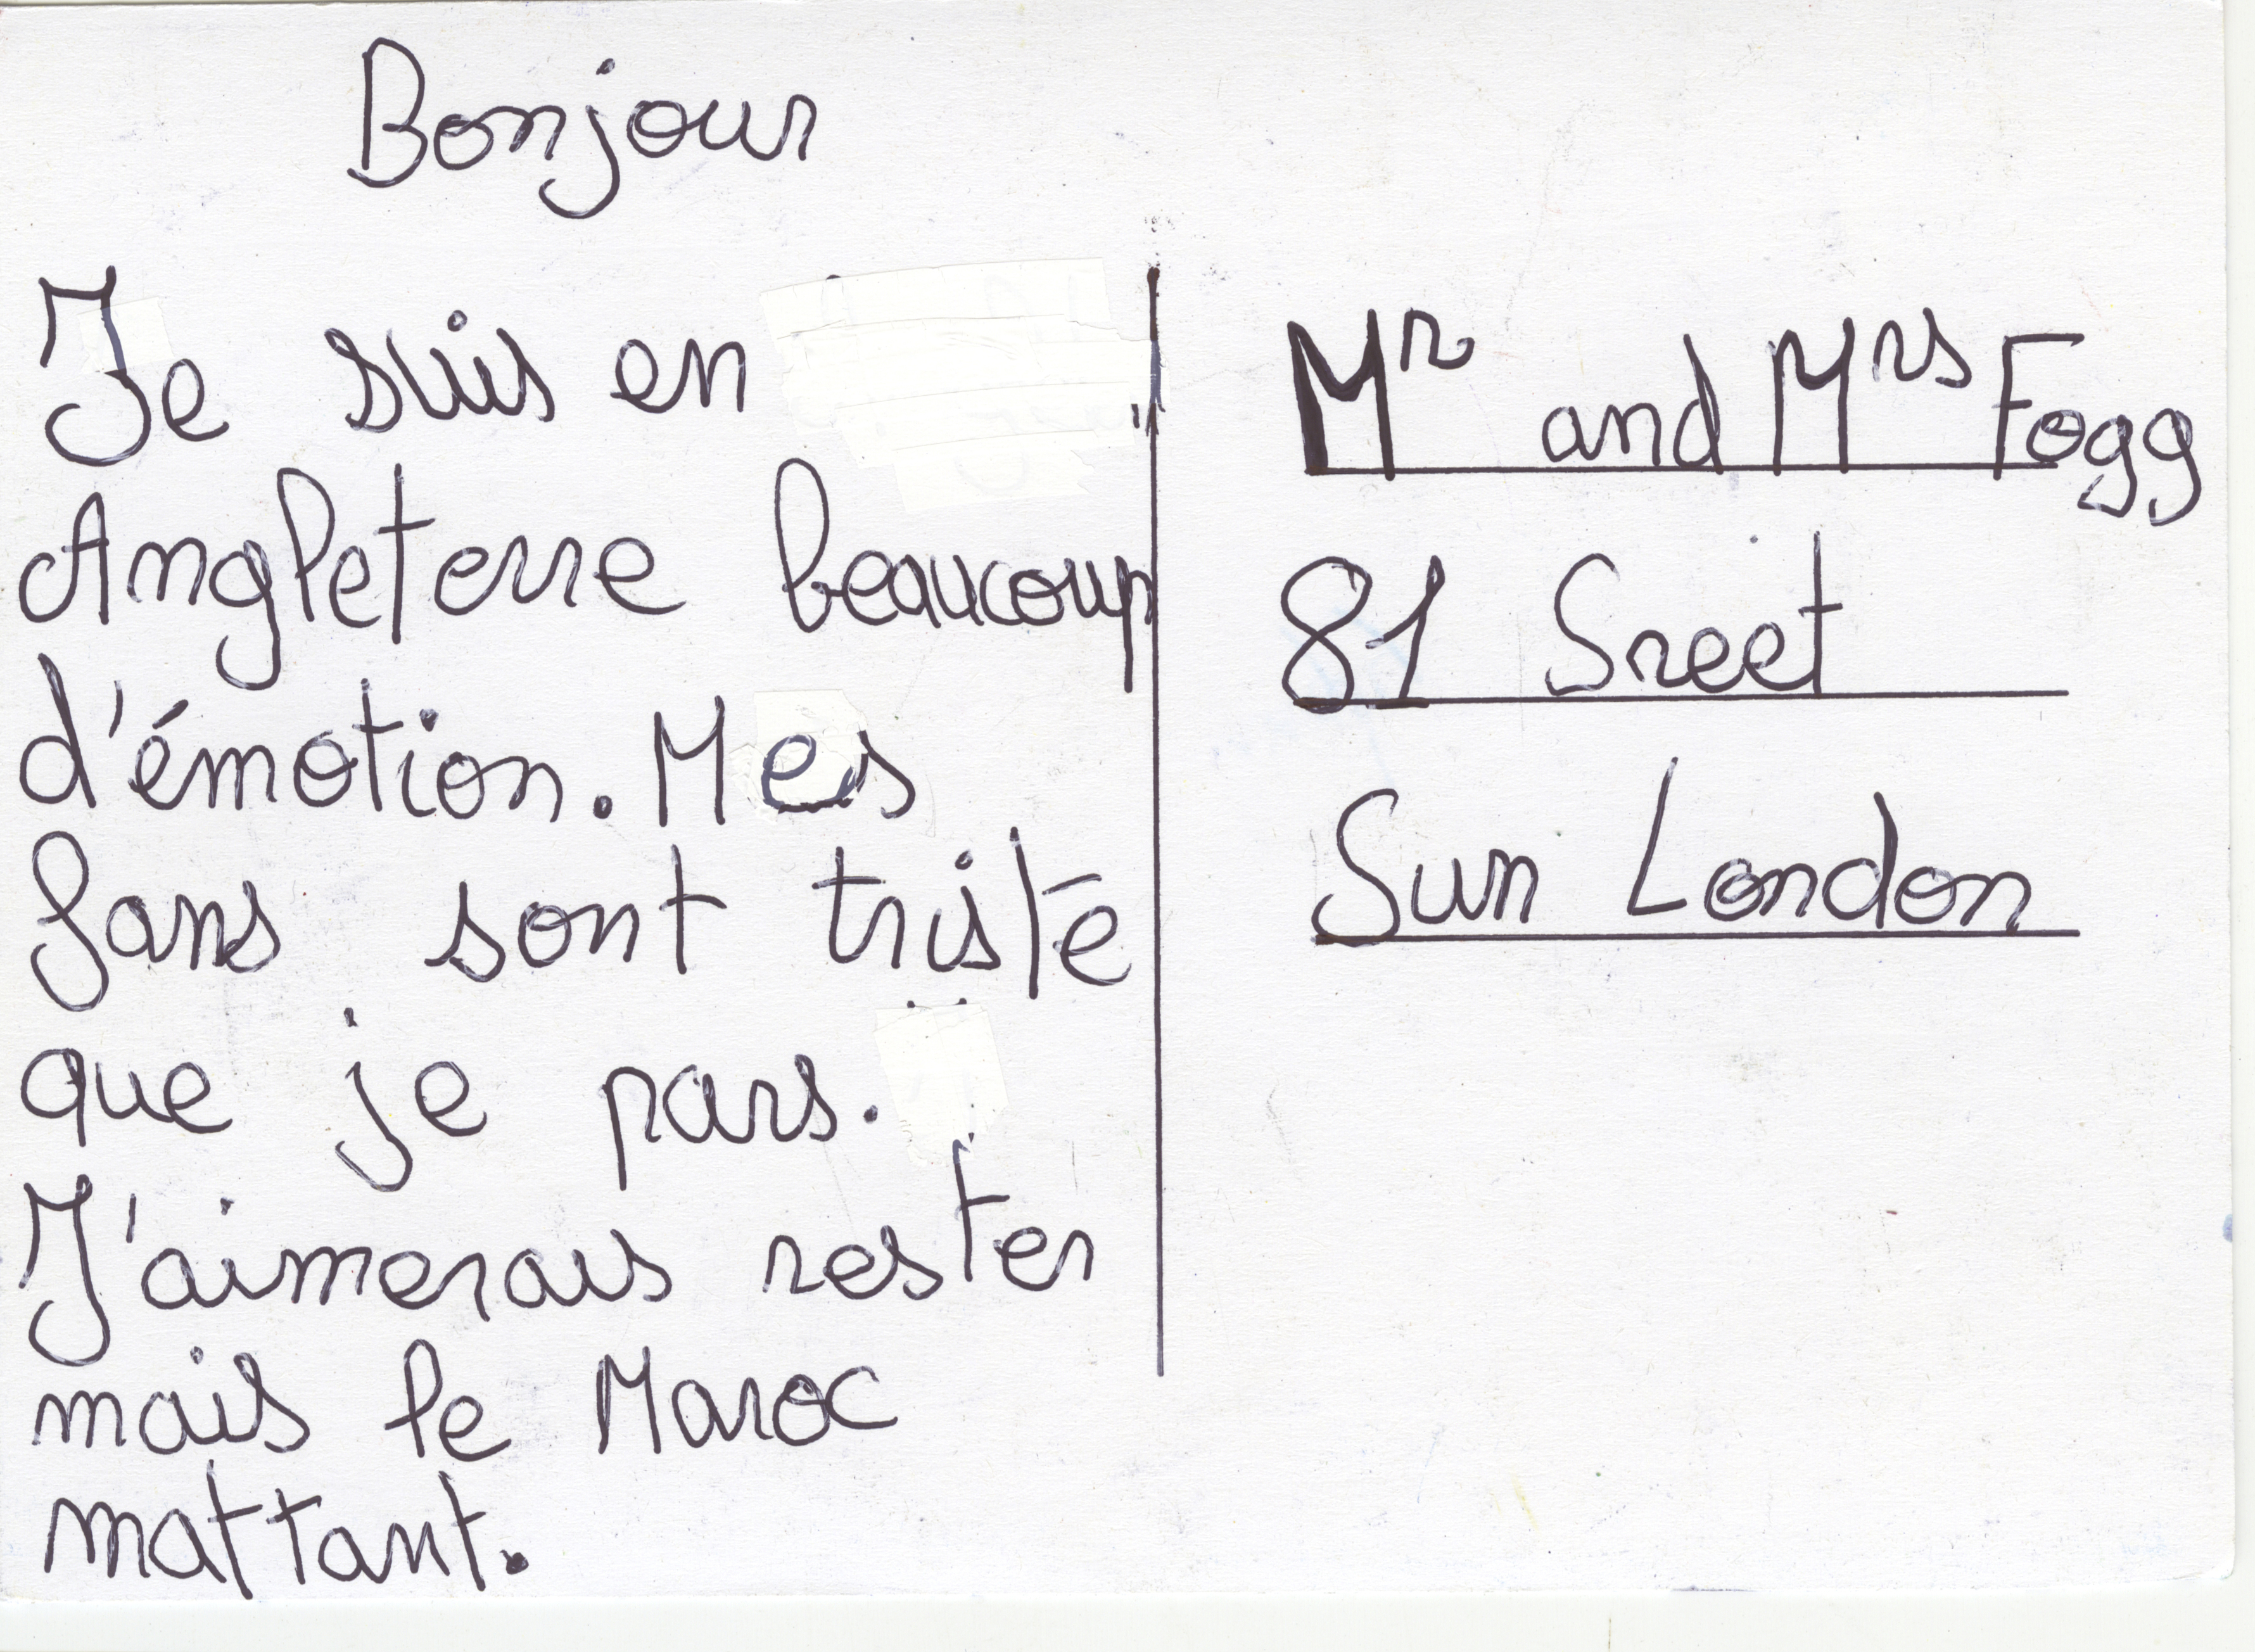 Bonjour
Je suis en
Angleterre beaucoup
d'émotion. Mes
fans sont triste
que je pars.
J'aimerais rester
mais le Maroc
mattant.
Mr and Mrs Fogg
81 Sreet
Sun London